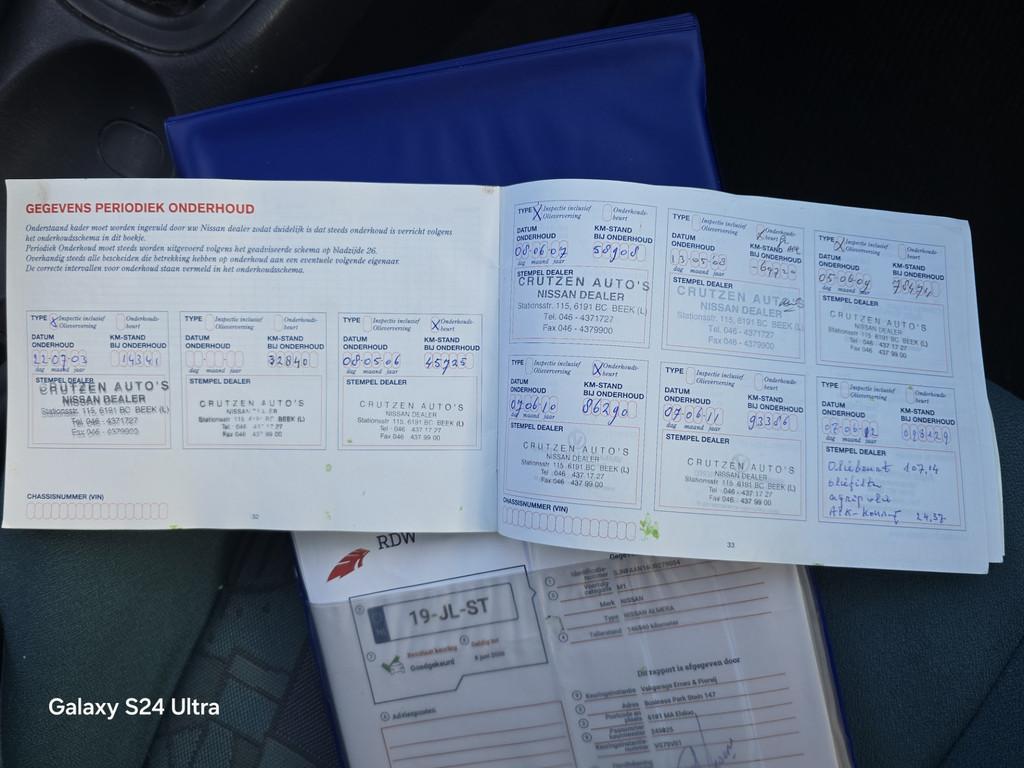 GEGEVENS PERIODIEK ONDERHOUD
Onderstaand kader moet worden ingevuld door uw Nissan dealer zodat duidelijk is dat steeds onderhoud is verricht volgens
het onderhoudsschema in dit boekje.
Periodiek Onderhoud moet steeds worden uitgevoerd volgens het geadviseerde schema op bladzijde 26.
Overhandig steeds alle bescheiden die betrekking hebben op onderhoud aan een eventuele volgende eigenaar.
De correcte intervallen voor onderhoud staan vermeld in het onderhoudsschema.
TYPE X Inspectie inclusief Olieverversing Onderhouds-beurt
DATUM ONDERHOUD KM-STAND BIJ ONDERHOUD
22-07-03 14341
dag maand jaar
STEMPEL DEALER
CRUTZEN AUTO'S
NISSAN DEALER
Stationsstr. 115, 6191 BC BEEK (L)
Tel 046 - 4371727
Fax 046 - 4379900
TYPE Inspectie inclusief Olieverversing Onderhouds-beurt
DATUM ONDERHOUD KM-STAND BIJ ONDERHOUD
32840
dag maand jaar
STEMPEL DEALER
CRUTZEN AUTO'S
NISSAN DEALER
Stationsstr. 115, 6191 BC BEEK (L)
Tel 046 - 437 17 27
Fax 046 - 437 99 00
TYPE Inspectie inclusief Olieverversing X Onderhouds-beurt
DATUM ONDERHOUD KM-STAND BIJ ONDERHOUD
08-05-06 45725
dag maand jaar
STEMPEL DEALER
CRUTZEN AUTO'S
NISSAN DEALER
Stationsstr. 115, 6191 BC BEEK (L)
Tel 046 - 437 17 27
Fax 046 - 437 99 00
CHASSISNUMMER (VIN)
32
TYPE X Inspectie inclusief Olieverversing Onderhouds-beurt
DATUM ONDERHOUD KM-STAND BIJ ONDERHOUD
08-06-07 58908
dag maand jaar
STEMPEL DEALER
CRUTZEN AUTO'S
NISSAN DEALER
Stationsstr. 115, 6191 BC BEEK (L)
Tel. 046 - 4371727
Fax 046 - 4379900
TYPE Inspectie inclusief Olieverversing X Onderhouds-beurt
DATUM ONDERHOUD KM-STAND BIJ ONDERHOUD
13-05-08 64720
dag maand jaar
STEMPEL DEALER
CRUTZEN AUTO'S
NISSAN DEALER
Stationsstr. 115, 6191 BC BEEK (L)
Tel. 046 - 4371727
Fax 046 - 4379900
TYPE X Inspectie inclusief Olieverversing Onderhouds-beurt
DATUM ONDERHOUD KM-STAND BIJ ONDERHOUD
05-06-09 78474
dag maand jaar
STEMPEL DEALER
CRUTZEN AUTO'S
NISSAN DEALER
Stationsstr. 115, 6191 BC BEEK (L)
Tel 046 - 437 17 27
Fax 046 - 437 99 00
TYPE Inspectie inclusief Olieverversing X Onderhouds-beurt
DATUM ONDERHOUD KM-STAND BIJ ONDERHOUD
07-06-10 86290
dag maand jaar
STEMPEL DEALER
CRUTZEN AUTO'S
NISSAN DEALER
Stationsstr. 115, 6191 BC BEEK (L)
Tel 046 - 437 17 27
Fax 046 - 437 99 00
TYPE Inspectie inclusief Olieverversing Onderhouds-beurt
DATUM ONDERHOUD KM-STAND BIJ ONDERHOUD
07-06-11 93386
dag maand jaar
STEMPEL DEALER
CRUTZEN AUTO'S
NISSAN DEALER
Stationsstr. 115, 6191 BC BEEK (L)
Tel 046 - 437 17 27
Fax 046 - 437 99 00
TYPE Inspectie inclusief Olieverversing Onderhouds-beurt
DATUM ONDERHOUD KM-STAND BIJ ONDERHOUD
07-06-12
dag maand jaar
STEMPEL DEALER
107,14
oliefilter
24,37
CHASSISNUMMER (VIN)
33
RDW
19-JL-ST
Goedgekeurd
Merk NISSAN
Type NISSAN ALMERA
Tellerstand 146840 kilometer
Dit rapport is afgegeven door
Adres Business Park Stein 147
6181 MA Elsloo
Adviespunten
Galaxy S24 Ultra